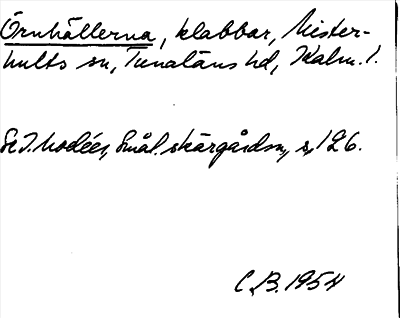 Örnhällerna, klabbar, Mister-
hults sn, Tunaläns hd, Kalm. l.
Se I. Modéer, Smål. skärgårdsn, s. 126.
C.B. 1954